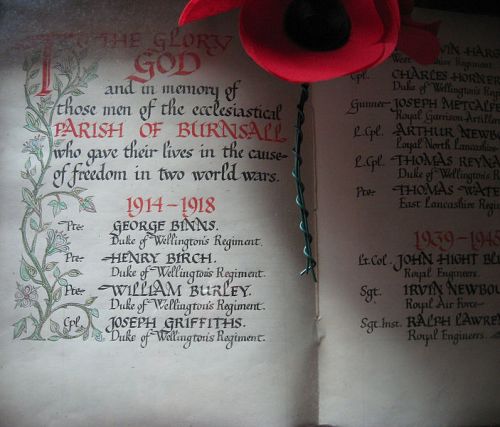 To THE GLORY
GOD
and in memory of
those men of the ecclesiastical
PARISH OF BURNSALL
who gave their lives in the cause
of freedom in two world wars.
1914-1918
Pte. GEORGE BINNS.
Duke of Wellington's Regiment.
Pte. HENRY BIRCH.
Duke of Wellington's Regiment.
Pte. WILLIAM BURLEY.
Duke of Wellington's Regiment.
Cpl. JOSEPH GRIFFITHS.
Duke of Wellington's Regiment.
Cpl. CHARLES HORNE
Duke of Wellington's R
Gunner JOSEPH METCALF
Royal Garrison Artiller
L.Cpl. ARTHUR NEW
Loyal North Lancashire
L.Cpl. THOMAS REYNA
Duke of Wellington's R
Pte. THOMAS WAT
East Lancashire Regi
1939-1945
Lt.Col. JOHN HIGHT BL
Royal Engineers.
Sgt. IRVIN NEWBOU
Royal Air Force
Sgt.Inst. RALPH LAWRE
Royal Engineers.